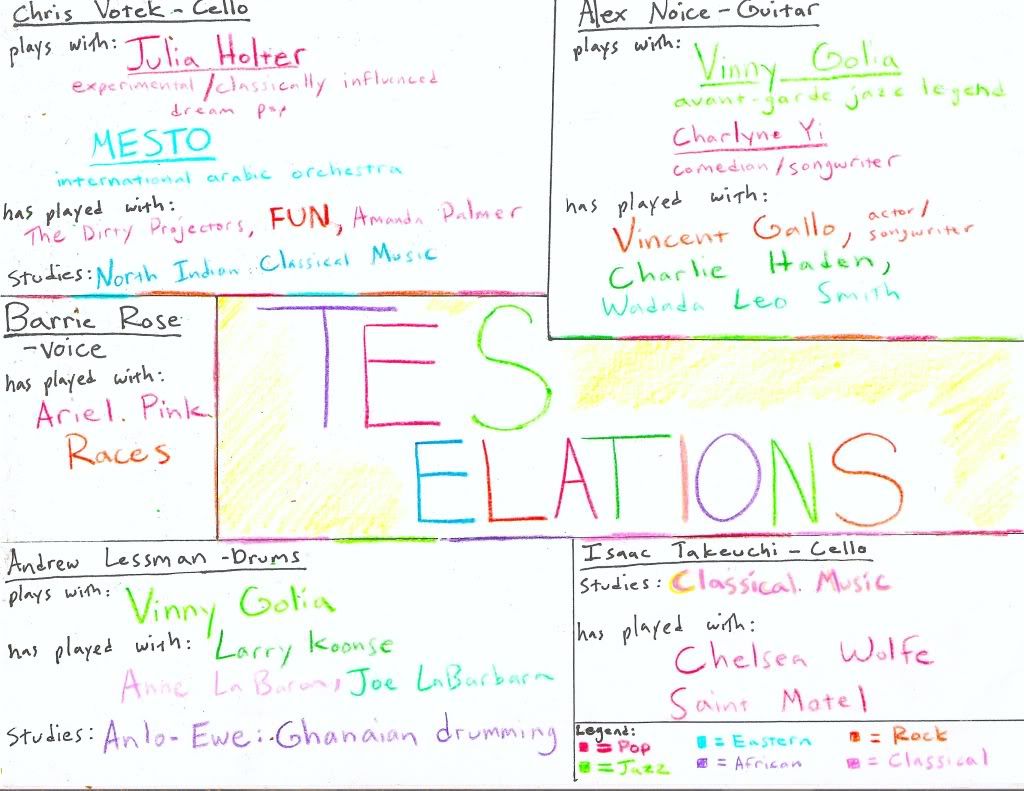 Chris Votek - Cello
plays with: Julia Holter
experimental/classically influenced
dream pop
MESTO
international arabic orchestra
has played with:
The Dirty Projectors, FUN, Amanda Palmer
Studies: North Indian Classical Music
Alex Noice - Guitar
plays with:
Vinny Golia
avant-garde jazz legend
Charlyne Yi
comedian/songwriter
has played with:
Vincent Gallo, actor/
songwriter
Charlie Haden,
Wadada Leo Smith
Barrie Rose
- Voice
has played with:
Ariel Pink
Races
TES
ELATIONS
Andrew Lessman - Drums
plays with:
Vinny Golia
has played with: Larry Koonse
Anne La Baron, Joe LaBarbara
Studies: Anlo-Ewe: Ghanaian drumming
Isaac Takeuchi - Cello
Studies: Classical Music
has played with:
Chelsea Wolfe
Saint Motel
Legend:
= Pop
= Jazz
= Eastern
= African
= Rock
= Classical